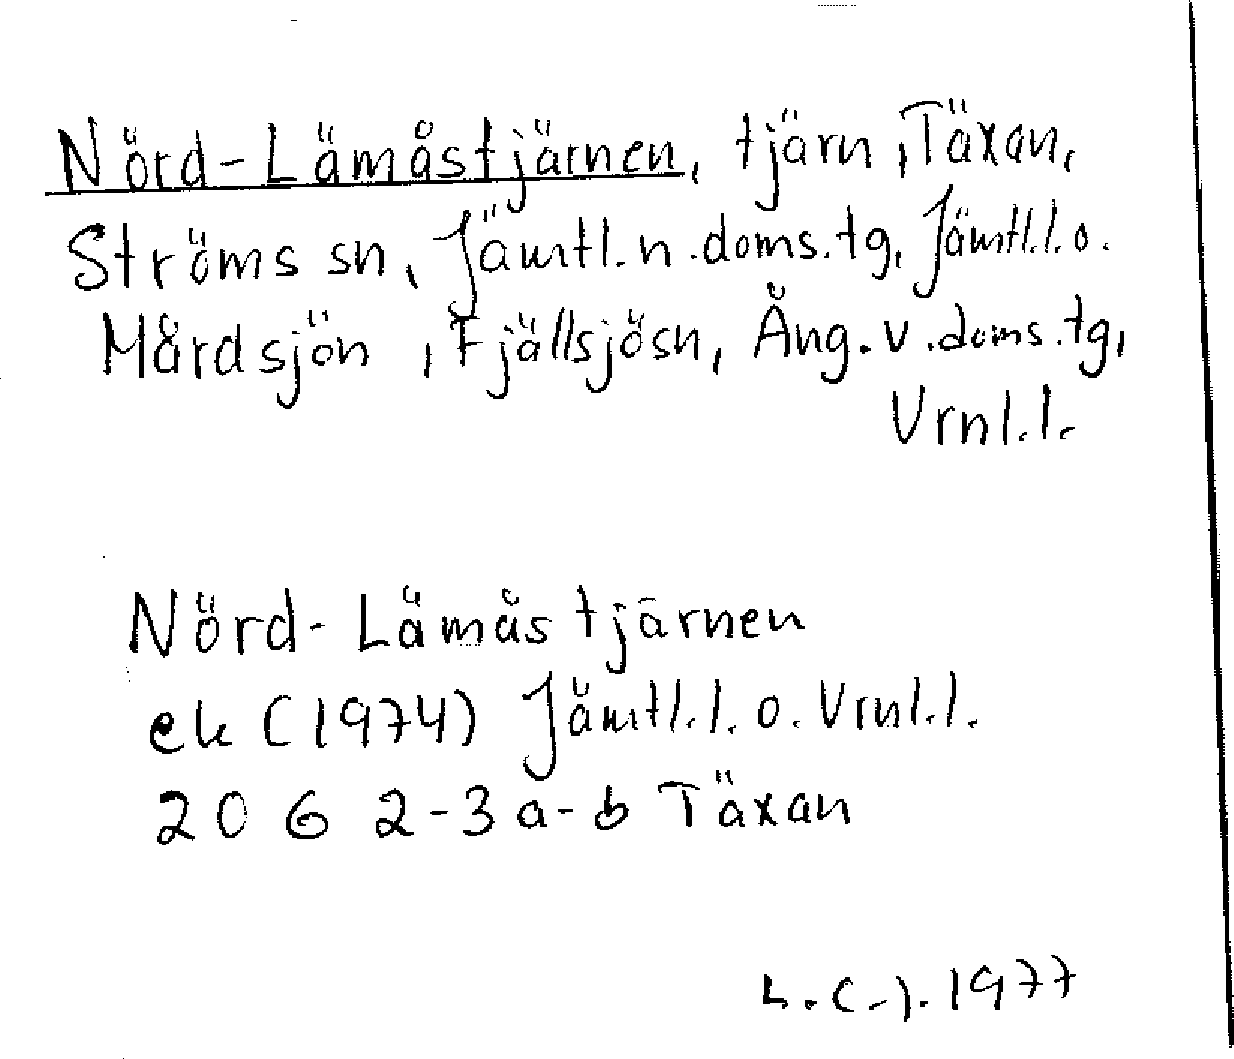 Nörd-Lämåstjärnen, tjärn, Täxan,
Ströms sn, Jämtl.n.doms.tg, Jämtl.l.o.
Mårdsjön, Fjällsjösn, Ång.v.doms.tg,
Vrnl.l.
Nörd-Lämåstjärnen
ek (1974) Jämtl.l.o.Vrnl.l.
20 6 2-3 a-b Täxan
1977